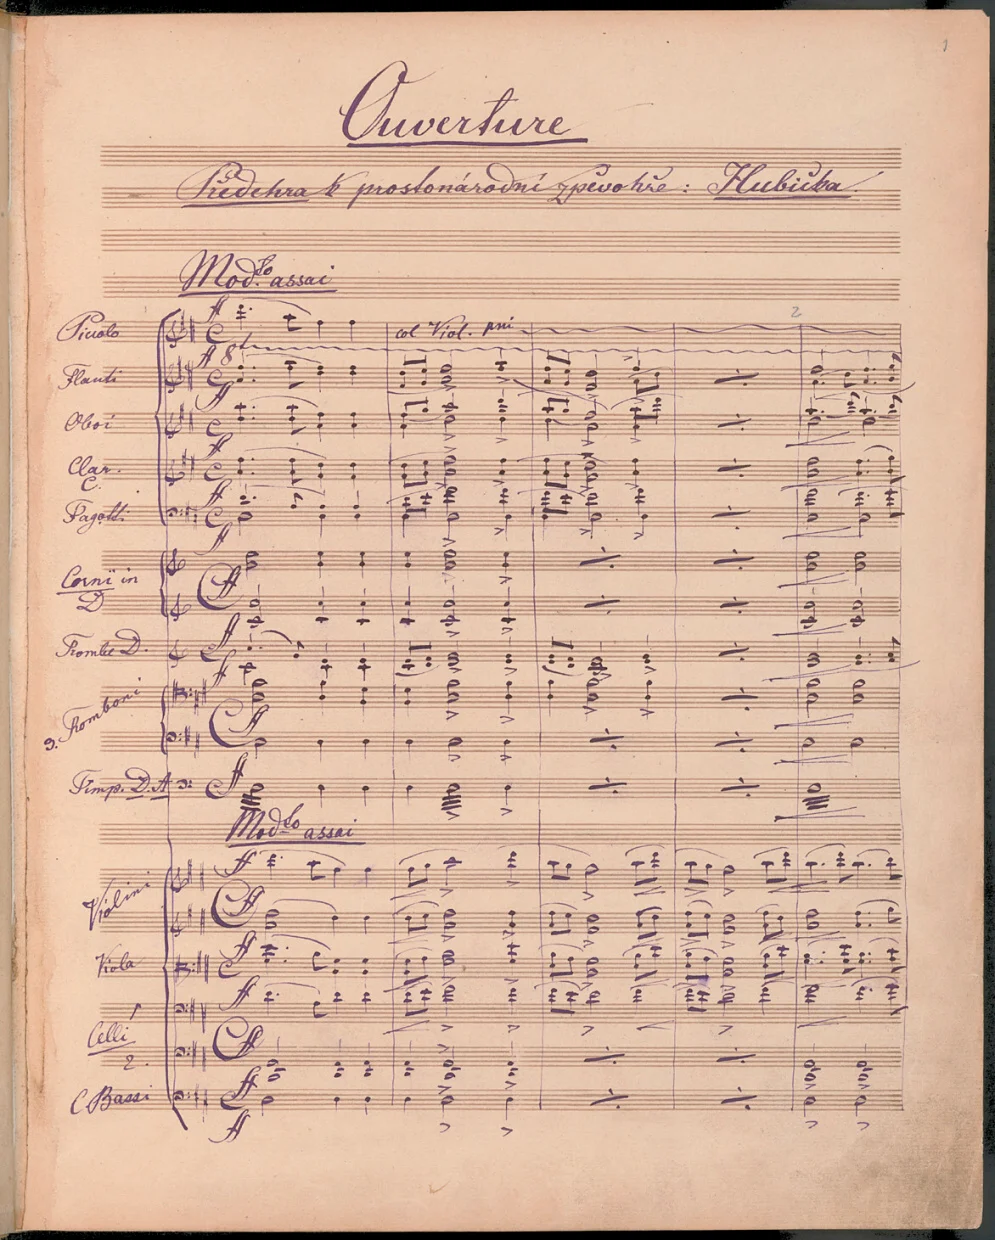 1
Ouverture
Předehra k prostonárodní zpěvohře: Hubička.
Mod.to assai
Piccolo ff col Viol. pmi 2
Flauti ff 8
Oboi ff
Clar. C. ff
Fagotti ff
Corni in D ff
Trombe D. ff
3. Tromboni ff
Timp. D. A ff
Mod.to assai
Violini ff
Viola ff
Celli 1 ff
2. ff
C. Bassi ff